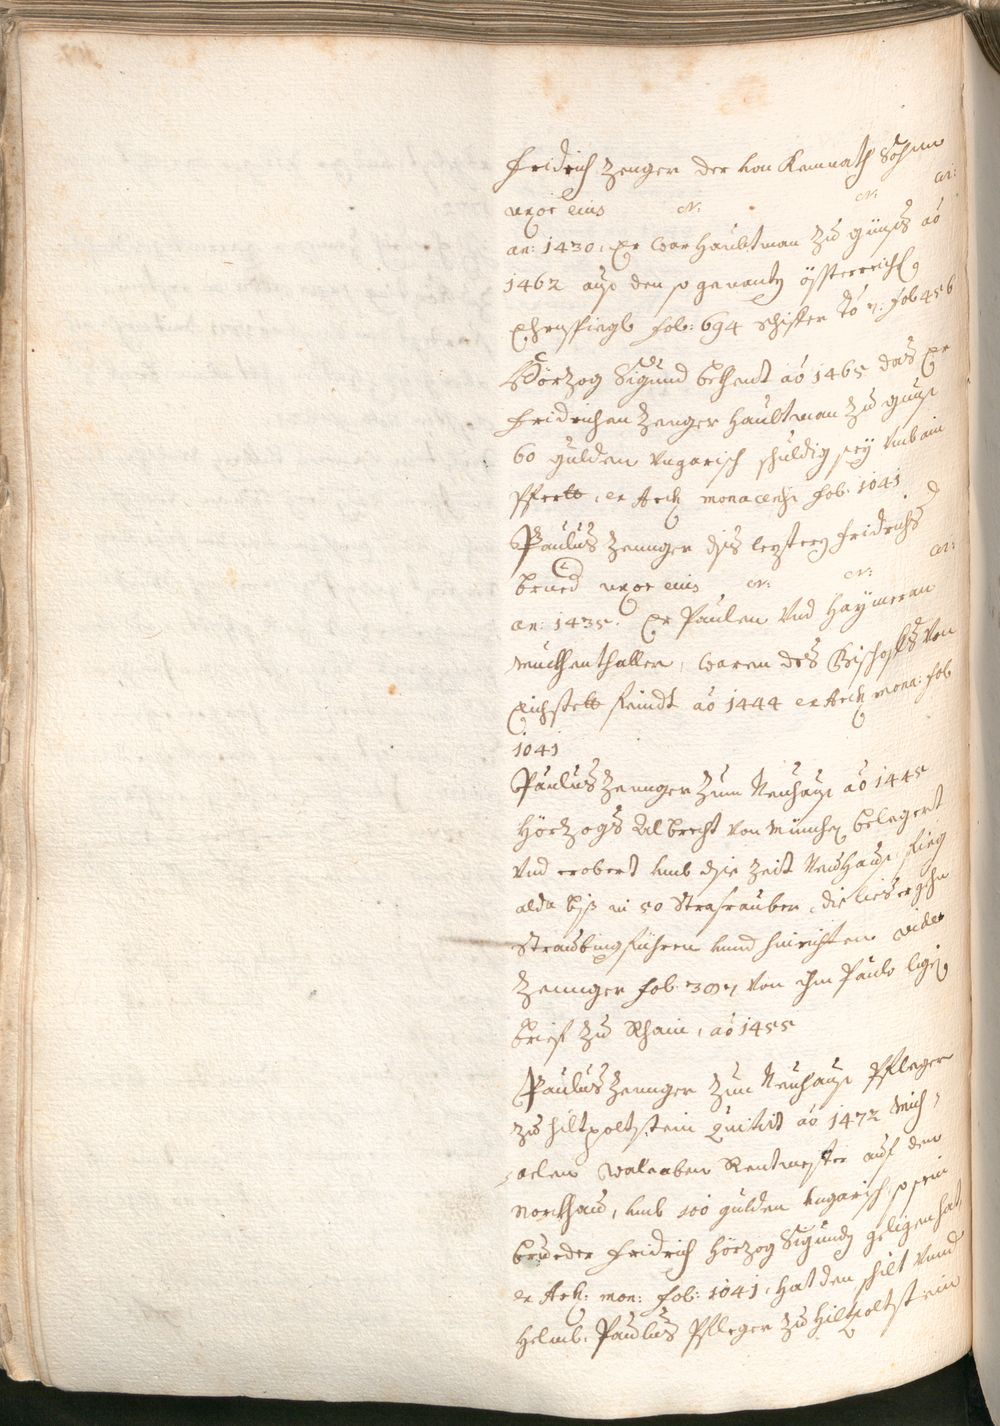 Fridrich Zenger der von Kemnath Sohn
uxor eius N: N: an:
an: 1430. Er war Haubtman zu günß aō
1462 auß den so genanty össterreichs:
Ehrnspiegl fol: 694 Schiffer To fol 456
Hörzog Sigund bekhent aō 1465 das Er
Fridrichen Zenger Haubtman zu günß
60 gulden Vngarisch schuldig sey Vmb ain
Pferdt, ex Arch monacensi fol: 1041
Paulus Zennger dis lezsten Fridrichs
brued uxor eius N: N: an:
an: 1435. Er Paulen Vnd Haymeran
Muckhenthaller, waren des Bischoffs Von
Eichstett feindt aō 1444 ex Arch mona: fol
1041
Paulus Zennger Zum Neuhauß aō 1445
Hörzogs Albrecht Von Münch belegert
Vnd erobert vmb dise Zeit Neuhauß, fieng
alda biß in 50 Strasrauber, die lies er ghn
Straubing führen vnnd hinrichten vide
Zennger fol 307 Von ihm Paulo ligt
brief zu Rhain, aō 1455
Paulus Zennger Zum Neuhauß Pfleger
zu Hiltpoltstein Quitirt aō 1472 Mich,
aelen Rentmaister auf dem
Northau, vmb 100 gulden vngarisch, so sein
brueder Fridrich Hörzog Sigundt geligen hat
ex Arch: mon: fol: 1041, hat den schilt Vnnd
Helmb: Paulus Pfleger zu Hiltpoltstein